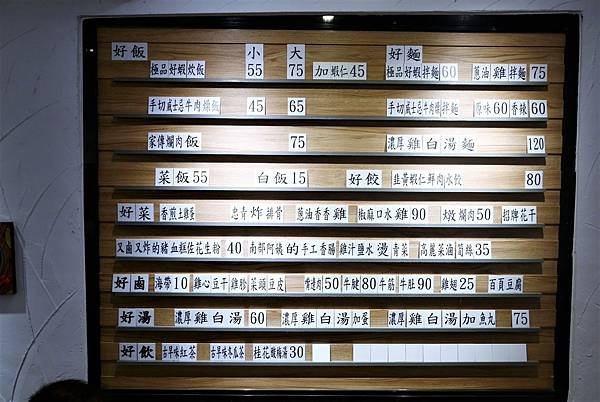 好飯 小 大 好麵
極品好蝦炊飯 55 75 加蝦仁45 極品好蝦拌麵60 蔥油雞拌麵 75
手切威士忌牛肉燥飯 45 65 手切威士忌牛肉燥拌麵 原味60香辣60
家傳爌肉飯 75 濃厚雞白湯麵 120
菜飯55 白飯15 好餃 韭黃蝦仁鮮肉水餃 80
好菜 香煎土雞蛋 忠青炸排骨 蔥油香香雞 椒麻口水雞90 爌肉50 招牌花干
又鹵又炸的豬血糕佐花生粉 40 南部阿嬤的手工香腸 雞汁鹽水燙青菜 高麗菜滷筍絲35
好鹵 海帶10 雞心豆干 雞胗 菜頭豆皮 50 牛腱80 牛筋 牛肚90 雞翅25 百頁豆腐
好湯 濃厚雞白湯60 濃厚雞白湯加蛋 濃厚雞白湯加魚丸 75
好飲 古早味紅茶 古早味冬瓜茶 桂花酸梅湯30